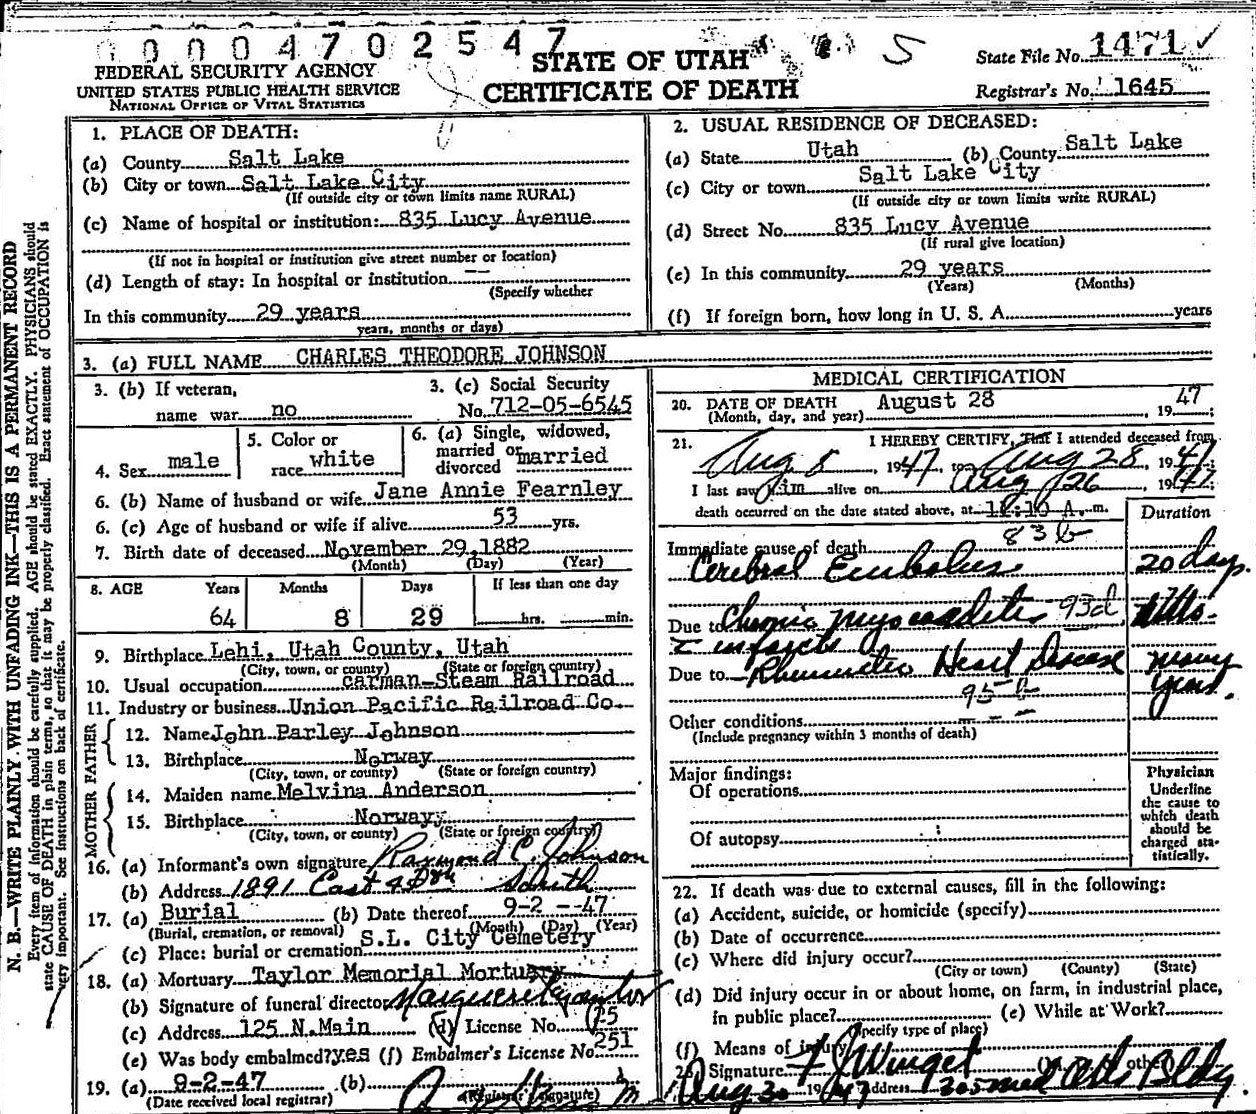 0004702547
STATE OF UTAH
CERTIFICATE OF DEATH
FEDERAL SECURITY AGENCY
UNITED STATES PUBLIC HEALTH SERVICE
NATIONAL OFFICE OF VITAL STATISTICS
S
State File No. 1471 ✓
Registrar's No. 1645
N. B.—WRITE PLAINLY WITH UNFADING INK—THIS IS A PERMANENT RECORD
Every item of information should be carefully supplied. AGE should be stated EXACTLY. PHYSICIANS should
state CAUSE OF DEATH in plain terms, so that it may be properly classified. Exact statement of OCCUPATION is
very important. See instructions on back of certificate.
1. PLACE OF DEATH:
(a) County Salt Lake
(b) City or town Salt Lake City
(If outside city or town limits name RURAL)
(c) Name of hospital or institution: 835 Lucy Avenue
(If not in hospital or institution give street number or location)
(d) Length of stay: In hospital or institution --
(Specify whether
In this community 29 years
years, months or days)
2. USUAL RESIDENCE OF DECEASED:
(a) State Utah (b) County Salt Lake
(c) City or town Salt Lake City
(If outside city or town limits write RURAL)
(d) Street No. 835 Lucy Avenue
(If rural give location)
(e) In this community 29 years
(Years) (Months)
(f) If foreign born, how long in U. S. A. years
3. (a) FULL NAME CHARLES THEODORE JOHNSON
3. (b) If veteran,
name war no
3. (c) Social Security
No. 712-05-6545
4. Sex male
5. Color or
race white
6. (a) Single, widowed,
married or
divorced married
6. (b) Name of husband or wife Jane Annie Fearnley
6. (c) Age of husband or wife if alive 53 yrs.
7. Birth date of deceased November 29,1882
(Month) (Day) (Year)
8. AGE Years Months Days If less than one day
64 8 29 hrs. min.
9. Birthplace Lehi, Utah County, Utah
(City, town, or county) (State or foreign country)
10. Usual occupation carman-Steam Railroad
11. Industry or business Union Pacific Railroad Co.
FATHER
12. Name John Parley Johnson
13. Birthplace Norway
(City, town, or county) (State or foreign country)
MOTHER
14. Maiden name Melvina Anderson
15. Birthplace Norway
(City, town, or county) (State or foreign country)
16. (a) Informant's own signature Raymond C. Johnson
(b) Address 1891 East South
17. (a) Burial (b) Date thereof 9-2--47
(Burial, cremation, or removal) (Month) (Day) (Year)
(c) Place: burial or cremation S.L. City Cemetery
18. (a) Mortuary Taylor Memorial Mortuary
(b) Signature of funeral director Marguerite Taylor
(c) Address 125 N.Main (d) License No.
(e) Was body embalmed? yes (f) Embalmer's License No. 251
19. (a) 9-2-47 (b)
(Date received local registrar) (Registrar's signature)
MEDICAL CERTIFICATION
20. DATE OF DEATH August 28, 1947;
(Month, day, and year)
21. I HEREBY CERTIFY, That I attended deceased from
Aug 8, 1947, to Aug 28 1947
I last saw him alive on Aug 26 1947
death occurred on the date stated above, at A. m.
Duration
83b
Immediate cause of death
Cerebral Embolus 20 days.
Due to Chronic myocarditis 93d
c infarcts
Due to Rheumatic Heart Disease many
years.
95
Other conditions
(Include pregnancy within 3 months of death)
Major findings:
Of operations
Of autopsy
Physician
Underline
the cause to
which death
should be
charged sta-
tistically.
22. If death was due to external causes, fill in the following:
(a) Accident, suicide, or homicide (specify)
(b) Date of occurrence
(c) Where did injury occur?
(City or town) (County) (State)
(d) Did injury occur in or about home, on farm, in industrial place,
in public place? (e) While at Work?
(Specify type of place)
(f) Means of injury
Signature Winget
Aug 30 1947 Address Med Arts Bldg.